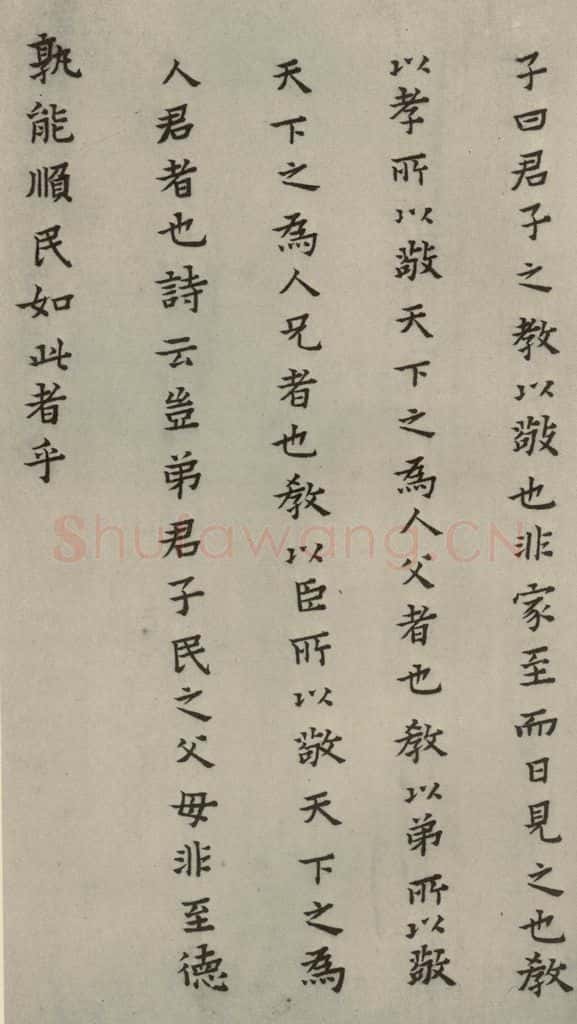 子曰君子之教以敬也非家至而日見之也教
以孝所以敬天下之為人父者也教以弟所以敬
天下之為人兄者也教以臣所以敬天下之為
人君者也詩云豈弟君子民之父母非至德
孰能順民如此者乎
Shufawang.CN